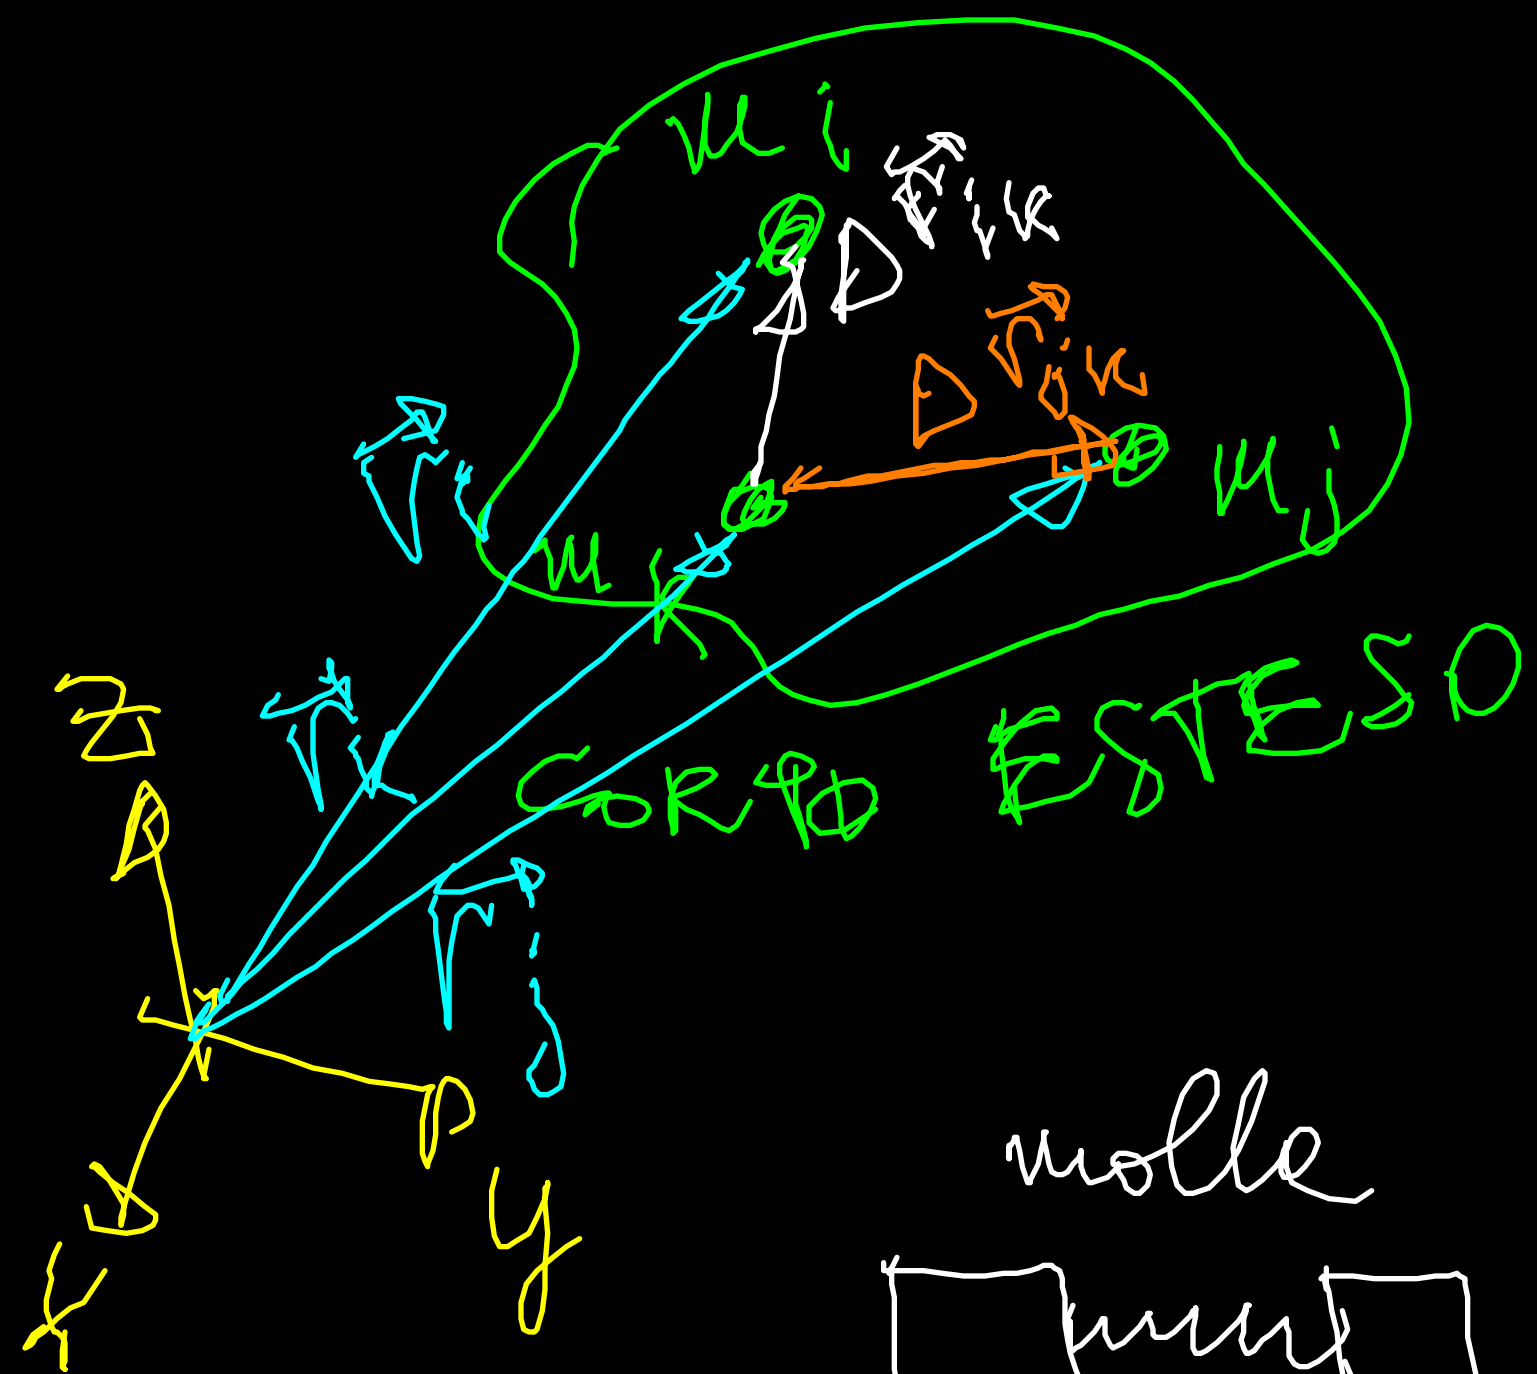 m i
Δ r⃗ i k
Δ r⃗ j k
r⃗ i
m j
m k
r⃗ k
z
CORPO ESTESO
r⃗ j
y
x
molle